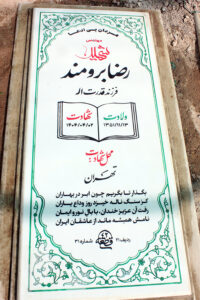 قهرمان بی ادعا
مهندس
شهید
رضا برومند
فرزند قدرت اله
ولادت
۱۳۵۱/۱۱/۱۳
شهادت
۱۴۰۴/۰۴/۰۲
محل شهادت:
تهران
بگذار تا بگرییم چون ابر در بهاران
کز سنگ ناله خیزد روز وداع یاران
رفت آن عزیز خندان، با بال نور و ایمان
نامش همیشه ماند از عاشقان ایران
ردیف: ۲۱
شماره: ۳۱